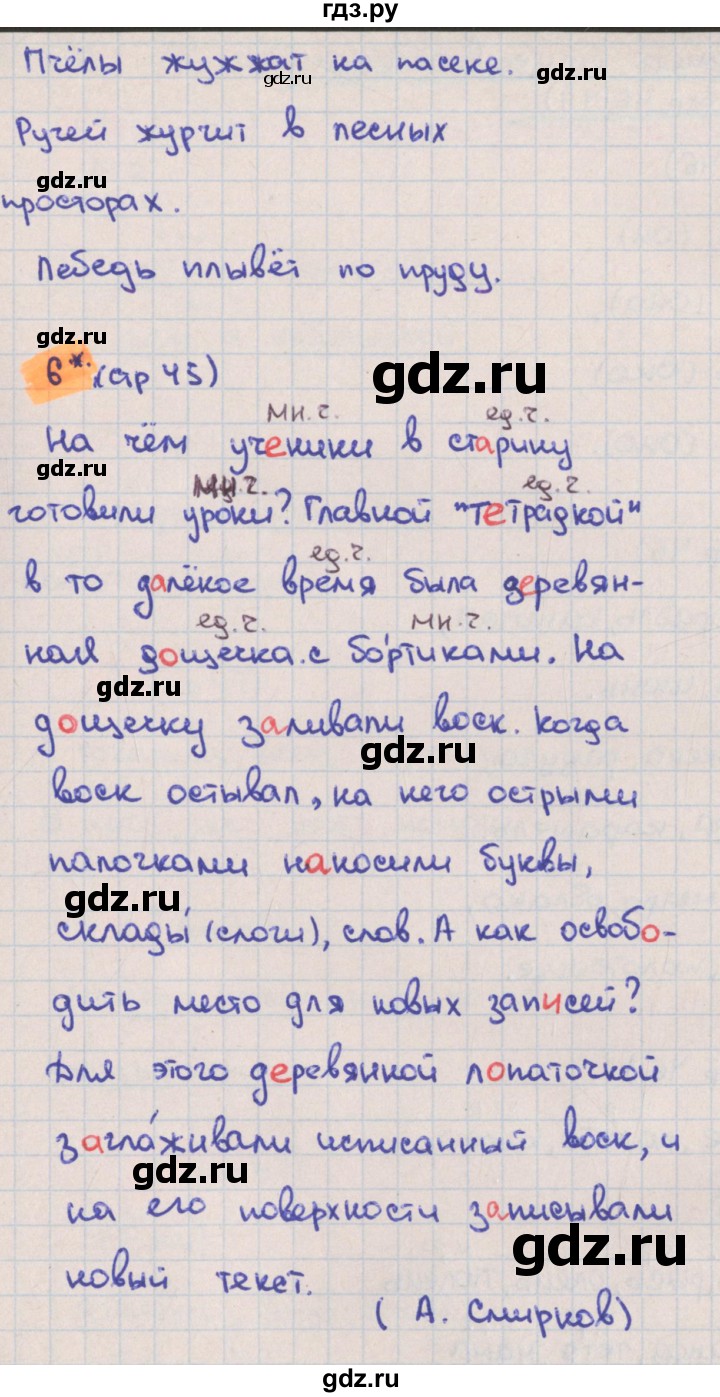 гдз.ру
Пчёлы жужжат на пасеке.
gdz.ru gdz.ru
Ручей журчит в лесных
gdz.ru
просторах.
Лебедь плывёт по пруду.
gdz.ru
6*. (стр 45)
gdz.ru
мн.ч. ед.ч.
На чём ученики в старину
gdz.ru
мн.ч. ед.ч.
готовили уроки? Главной "тетрадкой"
ед.ч.
в то далёкое время была деревян-
ед.ч. мн.ч.
ная дощечка с бо́ртиками. На
gdz.ru
дощечку заливали воск. Когда
gdz.ru
воск остывал, на него острыми
палочками наносили буквы,
gdz.ru
склады́ (слоги), слов. А как освобо-
дить место для новых записей?
Для этого деревянной лопаточкой
загла́живали исписанный воск, и
gdz.ru
на его поверхности записывали
gdz.ru
новый текст.
(А. Смирнов)
gdz.ru